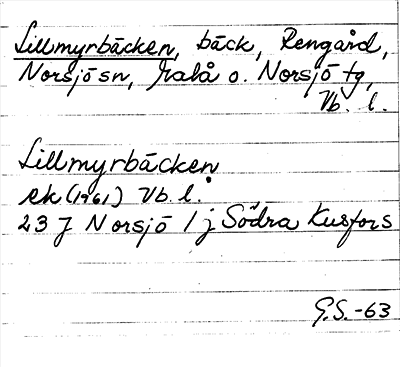 Lillmyrbäcken, bäck, Rengård,
Norsjö sn, Malå o. Norsjö tg,
Vb. l.
Lillmyrbäcken
ek (1961) Vb. l.
23 J Norsjö 1 j Södra Kusfors
G.S. -63